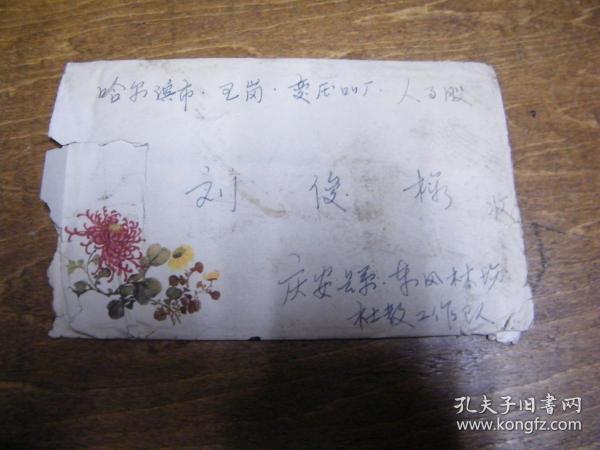 哈尔滨市·王岗·变压叫厂·人事股
刘俊 收
庆安县·东风林场
社教工作队
孔夫子旧书网
www.kongfz.com